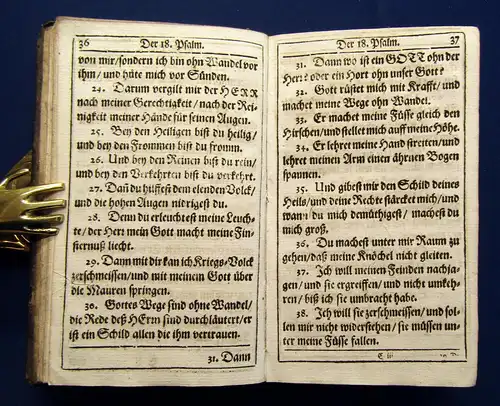 36 Der 18. Psalm.
von mir/sondern ich bin ohn Wandel vor
ihm/ und hüte mich vor Sünden.
24. Darum vergilt mir der HERR
nach meiner Gerechtigkeit/nach der Rei-
nigkeit meiner Hände für seinen Augen.
25. Bey den Heiligen bist du heilig/
und bey den Frommen bist du fromm.
26. Und bey den Reinen bist du rein/
und bey den Verkehrten bist du verkehrt.
27. Dañ du hilffest dem elenden Volck/
und die hohen Augen nidrigest du.
28. Denn du erleuchtest meine Leuch-
te/ der Herr mein Gott macht meine Fin-
sternuß liecht.
29. Dann mit dir kan ich Kriegs-Volck
zerschmeissen/ und mit meinem Gott über
die Mauren springen.
30. Gottes Wege sind ohne Wandel/
die Rede deß HErrn sind durchläutert/er
ist ein Schild allen die ihm vertrauen.
31. Dann
Der 18. Psalm. 37
31. Dann wo ist ein GOTT ohn der
Herr? oder ein Hort ohn unser Gott?
32. Gott rüstet mich mit Krafft/ und
machet meine Wege ohn Wandel.
33. Er machet meine Füsse gleich den
Hirschen/und stellet mich auff meine Höhe.
34. Er lehret meine Hand streiten/ und
lehret meinen Arm einen ährnen Bogen
spannen.
35. Und gibest mir den Schild deines
Heils/ und deine Rechte stärcket mich/ und
wann du mich demüthigest/ machest du
mich groß.
36. Du machest unter mir Raum zu
gehen/ daß meine Knöchel nicht gleiten.
37. Ich will meinen Feinden nachja-
gen/ und sie ergreiffen/ und nicht umkeh-
ren/ biß ich sie umbracht habe.
38. Ich will sie zerschmeissen/ und sol-
len mir nicht widerstehen/ sie müssen un-
ter meine Füsse fallen.
C iij